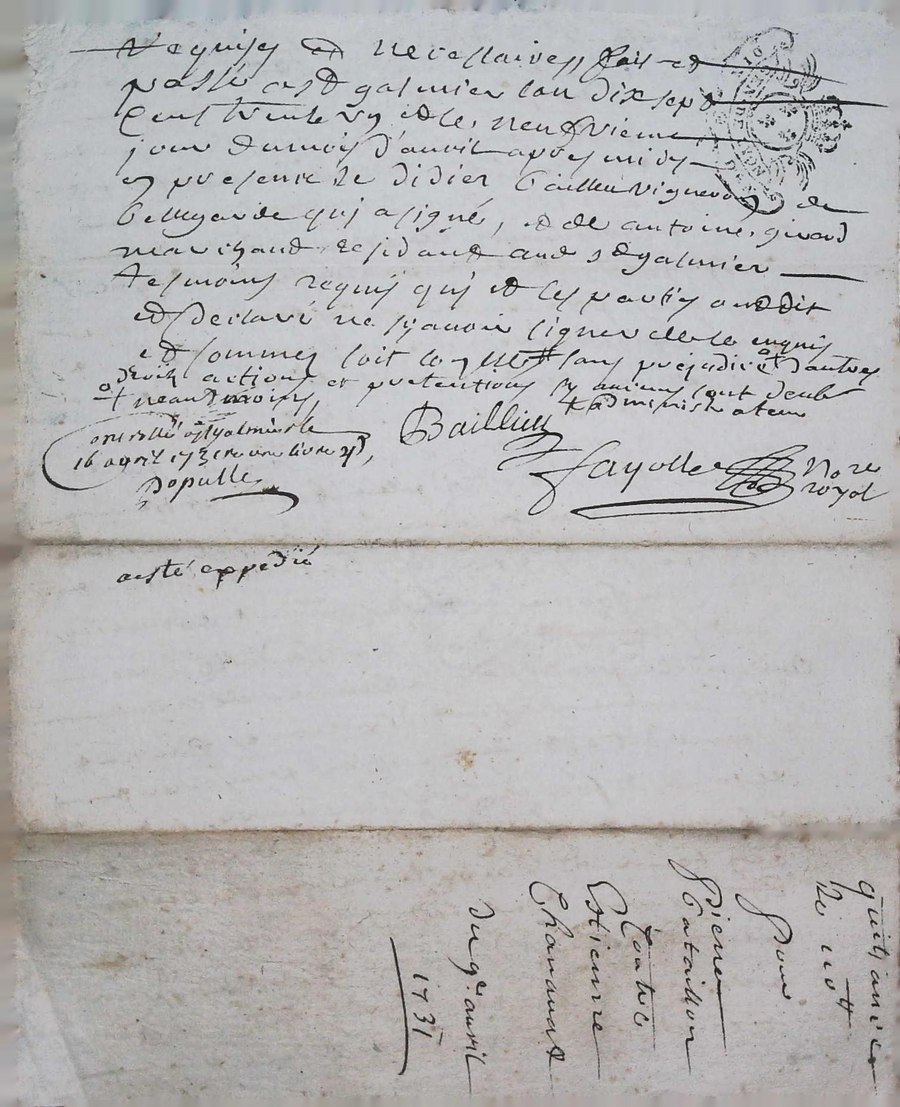 requises et necessaires, fait et
passé a st galmier lan dix sept
cent trente un et le neufvieme
jour du mois d'avril apres midy
en presence de didier bailleu vigneron de
bellegarde qui a signé, et de antoine girard
marchand residant aud st galmier
tesmoins requis qui et les parties ont dit
et declaré ne sçavoir signer de ce enquis
et sommés soit sans prejudice d'autres
droits actions et pretentions sy aucuns sont deub
neandmoins
administrateur
Baillieu
Fayolle Nore
royal
a st galmier le
16 avril 1731 une livre
Populle
a esté expedié
quittance
de 110tt
pour
Pierre
Bataillon
Contre
Estienne
Chanavat
du 9e avril
1731